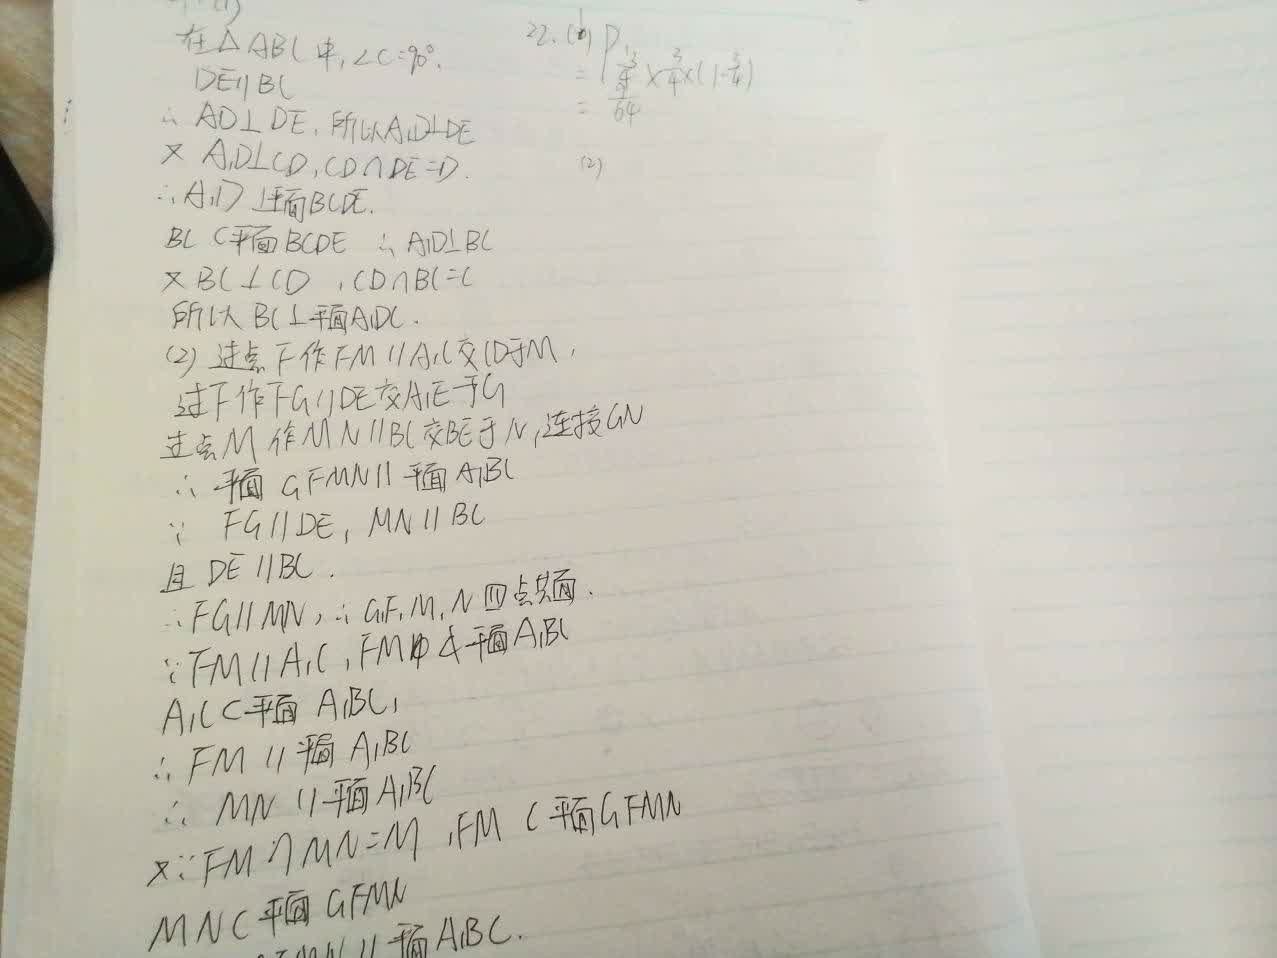 (1)
在△ABC中,∠C=90°,
DE//BC
∴ AD⊥DE,所以A₁D⊥DE
又 A₁D⊥CD,CD∩DE=D.
∴A₁D⊥平面BCDE.
BC⊂平面BCDE ∴ A₁D⊥BC
又BC⊥CD ,CD∩BC=C
所以 BC⊥平面A₁DC.
(2) 过点F作FM//A₁C交CD于M,
过F作FG//DE交A₁E于G
过点M作MN//BC交BE于N,连接GN
∴ 平面 GFMN//平面A₁BC
∵ FG//DE, MN//BC
且 DE//BC.
∴FG//MN,∴G,F,M,N四点共面.
∵FM//A₁C,FM⊄平面A₁BC
A₁C⊂平面 A₁BC,
∴FM//平面 A₁BC
∴ MN//平面A₁BC
又∵FM∩MN=M,FM⊂平面GFMN
MN⊂平面GFMN
GFMN//平面A₁BC.
22.(1) P
= ×3/4×(1-3/4)
= /64
(2)